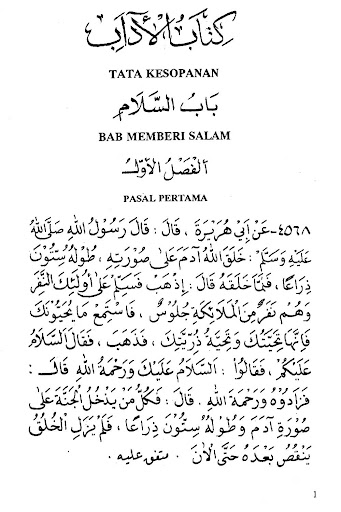 كِتَابُ الْأَدَابِ
TATA KESOPANAN
بَابُ السَّلَامِ
BAB MEMBERI SALAM
اَلْفَصْلُ الْأَوَّلُ
PASAL PERTAMA
٤٥٦٨- عَنْ أَبِي هُرَيْرَةَ ، قَالَ : قَالَ رَسُوْلُ اللهِ صَلَّى اللهُ
عَلَيْهِ وَسَلَّمَ : خَلَقَ اللهُ آدَمَ عَلَى صُوْرَتِهِ ، طُوْلُهُ سِتُّوْنَ
ذِرَاعًا ، فَلَمَّا خَلَقَهُ قَالَ : اِذْهَبْ فَسَلِّمْ عَلَى أُولٰئِكَ النَّفَرِ
وَهُمْ نَفَرٌ مِنَ الْمَلَائِكَةِ جُلُوْسٌ ، فَاسْتَمِعْ مَا يُحَيُّوْنَكَ
فَإِنَّهَا تَحِيَّتُكَ وَتَحِيَّةُ ذُرِّيَّتِكَ ، فَذَهَبَ ، فَقَالَ السَّلَامُ
عَلَيْكُمْ ، فَقَالُوْا : اَلسَّلَامُ عَلَيْكَ وَرَحْمَةُ اللهِ قَالَ :
فَزَادُوْهُ وَرَحْمَةُ اللهِ . قَالَ : فَكُلُّ مَنْ يَدْخُلُ الْجَنَّةَ عَلَى
صُوْرَةِ آدَمَ وَطُوْلُهُ سِتُّوْنَ ذِرَاعًا ، فَلَمْ يَزَلِ الْخَلْقُ
يَنْقُصُ بَعْدَهُ حَتَّى الْآنَ . متفق عليه .
1